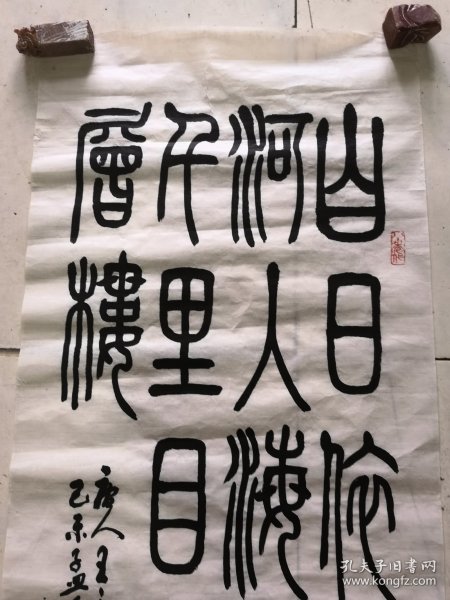 白日依
河入海
千里目
層樓
唐人王
己未孟
孔夫子旧书网
www.kongfz.com